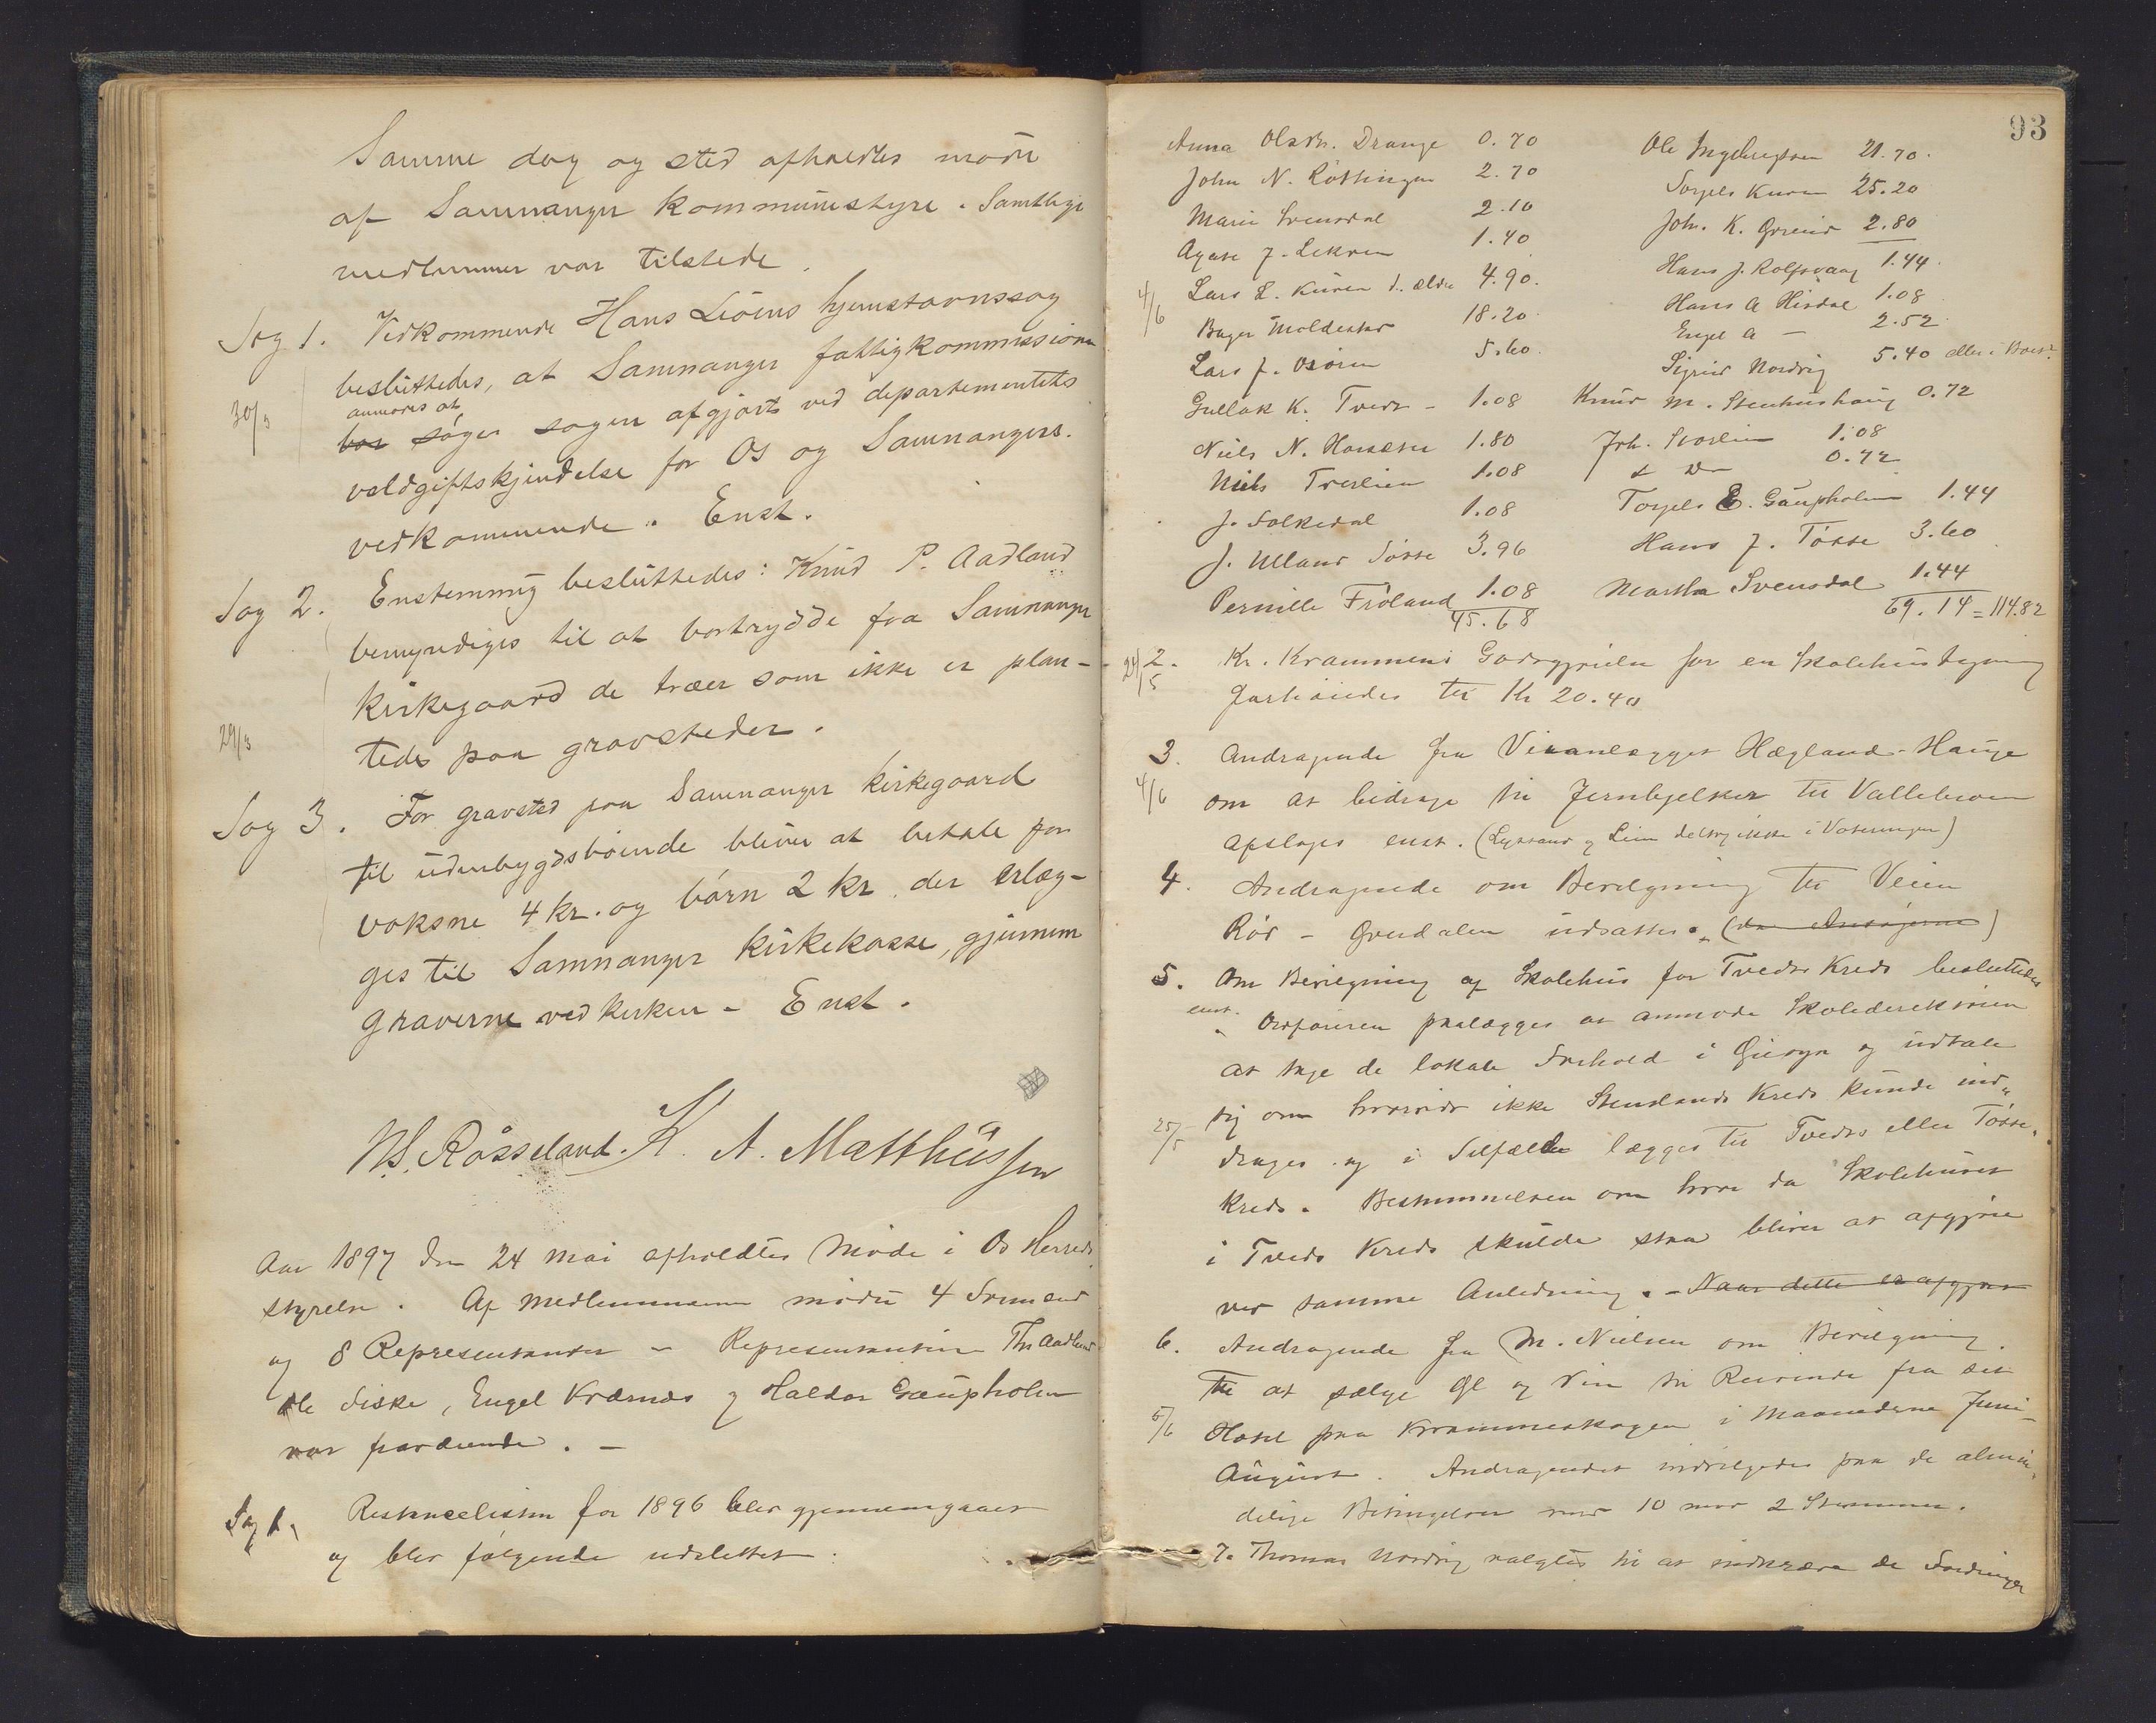 Samme dag og sted afholdtes møde
af Samnanger kommunestyre. Samtlige
medlemmer var tilstede.
Sag 1. Vedkommende Hans Liøens hjemstavnssag
besluttedes, at Samnanger fattigkommission
anmodes at
30/3 bør søger sagen afgjort ved departementets
voldgiftskjendelse for Os og Samnangers
vedkommende. Enst.
Sag 2. Enstemmig besluttedes: Knud P. Aadland
bemyndiges til at bortrydde fra Samnanger
kirkegaard de træer som ikke er plan-
29/3 tede paa gravsteder.
Sag 3. For gravsted paa Samnanger kirkegaard
til udenbygdsboende bliver at betale for
voksne 4 kr. og børn 2 kr. der erlæg-
ges til Samnanger kirkekasse, gjennem
graverne ved kirken - Enst.
N.S. Røsseland. K. A. Matthiassen
Aar 1897 den 24 mai afholdtes Møde i Os Herreds
styrelse. Af Medlemmerne mødte 4 Formænd
og 8 Representanter - Representanterne Ths Aadland
Ole Diske, Engel Kvernes og Haldor Gaupholm
var fraværende. -
Sag 1. Restancelisten for 1896 blev gjennemgaaet
og blev følgende udslettet:
93
Anna Olsdtr. Drange 0.70 Ole Ingebrigtsen 21.70.
John N. Røttingen 2.70 Torgels Kuven 25.20
Marie Svensdal 2.10 Joh. K. 2.80
Agate J. Lekven 1.40 Hans J. Rolfsvaag 1.44.
4/6 Lars L. Kuven d. ældre 4.90. Hans A Hisdal 1.08
Bager Moldestad 18.20 Engel A - 2.52
Lars J. Osøren 5.60. Sigrid Nordvig 5.40 eller i
Gullak K. Tvedt - 1.08 Knud M. Stenhushaug 0.72
Niels N. 1.80 Joh. 1.08
Niels 1.08 0.72
J. Solkedal 1.08 Torgels E. Gaupholm 1.44
J. Ulland Tøsse 3.96 Hans J. Tøsse 3.60
Pernille Frøland 1.08 Martha Svensdal 1.44
45.68 69.14 = 114.82
24/5 2. Kr. Krammens Godtgjørelse for en Skolehustegning
fastsattes til Kr 20.40
3. Andragende fra Veianlægget Hægland-Hauge
4/6 om at bidrage til Jernbjelker til Vallebroen
afslages enst. (Lyssand og Leiin deltog ikke i Voteringen)
4. Andragende om Bevilgning til Veien
Rød - Øvredalen udsattes. (da Ansøgerne)
5. Om Bevilgning af Skolehus for Tvedts Kreds besluttedes
enst. Ordføreren paalægges at anmode Skoledirektøren
at tage de lokale Forhold i Øiesyn og udtale
sig om hvorvidt ikke Stenslands Kreds kunde ind-
25/5 drages og i Tilfælde lægges til Tvedts eller Tøsse
Kreds. Bestemmelsen om hvor da Skolehuset
i Tvedts Kreds skulde staa bliver at afgjøre
ved samme Anledning. - Naar dette er afgjort
6. Andragende fra M. Nielsen om Bevilgning
til at sælge Øl og Vin til Reisende fra sit
5/6 Hotel paa Krammeskogen i Maanederne Juni-
August. Andragendet indvilgedes paa de almin-
delige Betingelser med 10 mod 2 Stemmer.
7. Thomas Nordvig valgtes til at indkræve de Fordringer